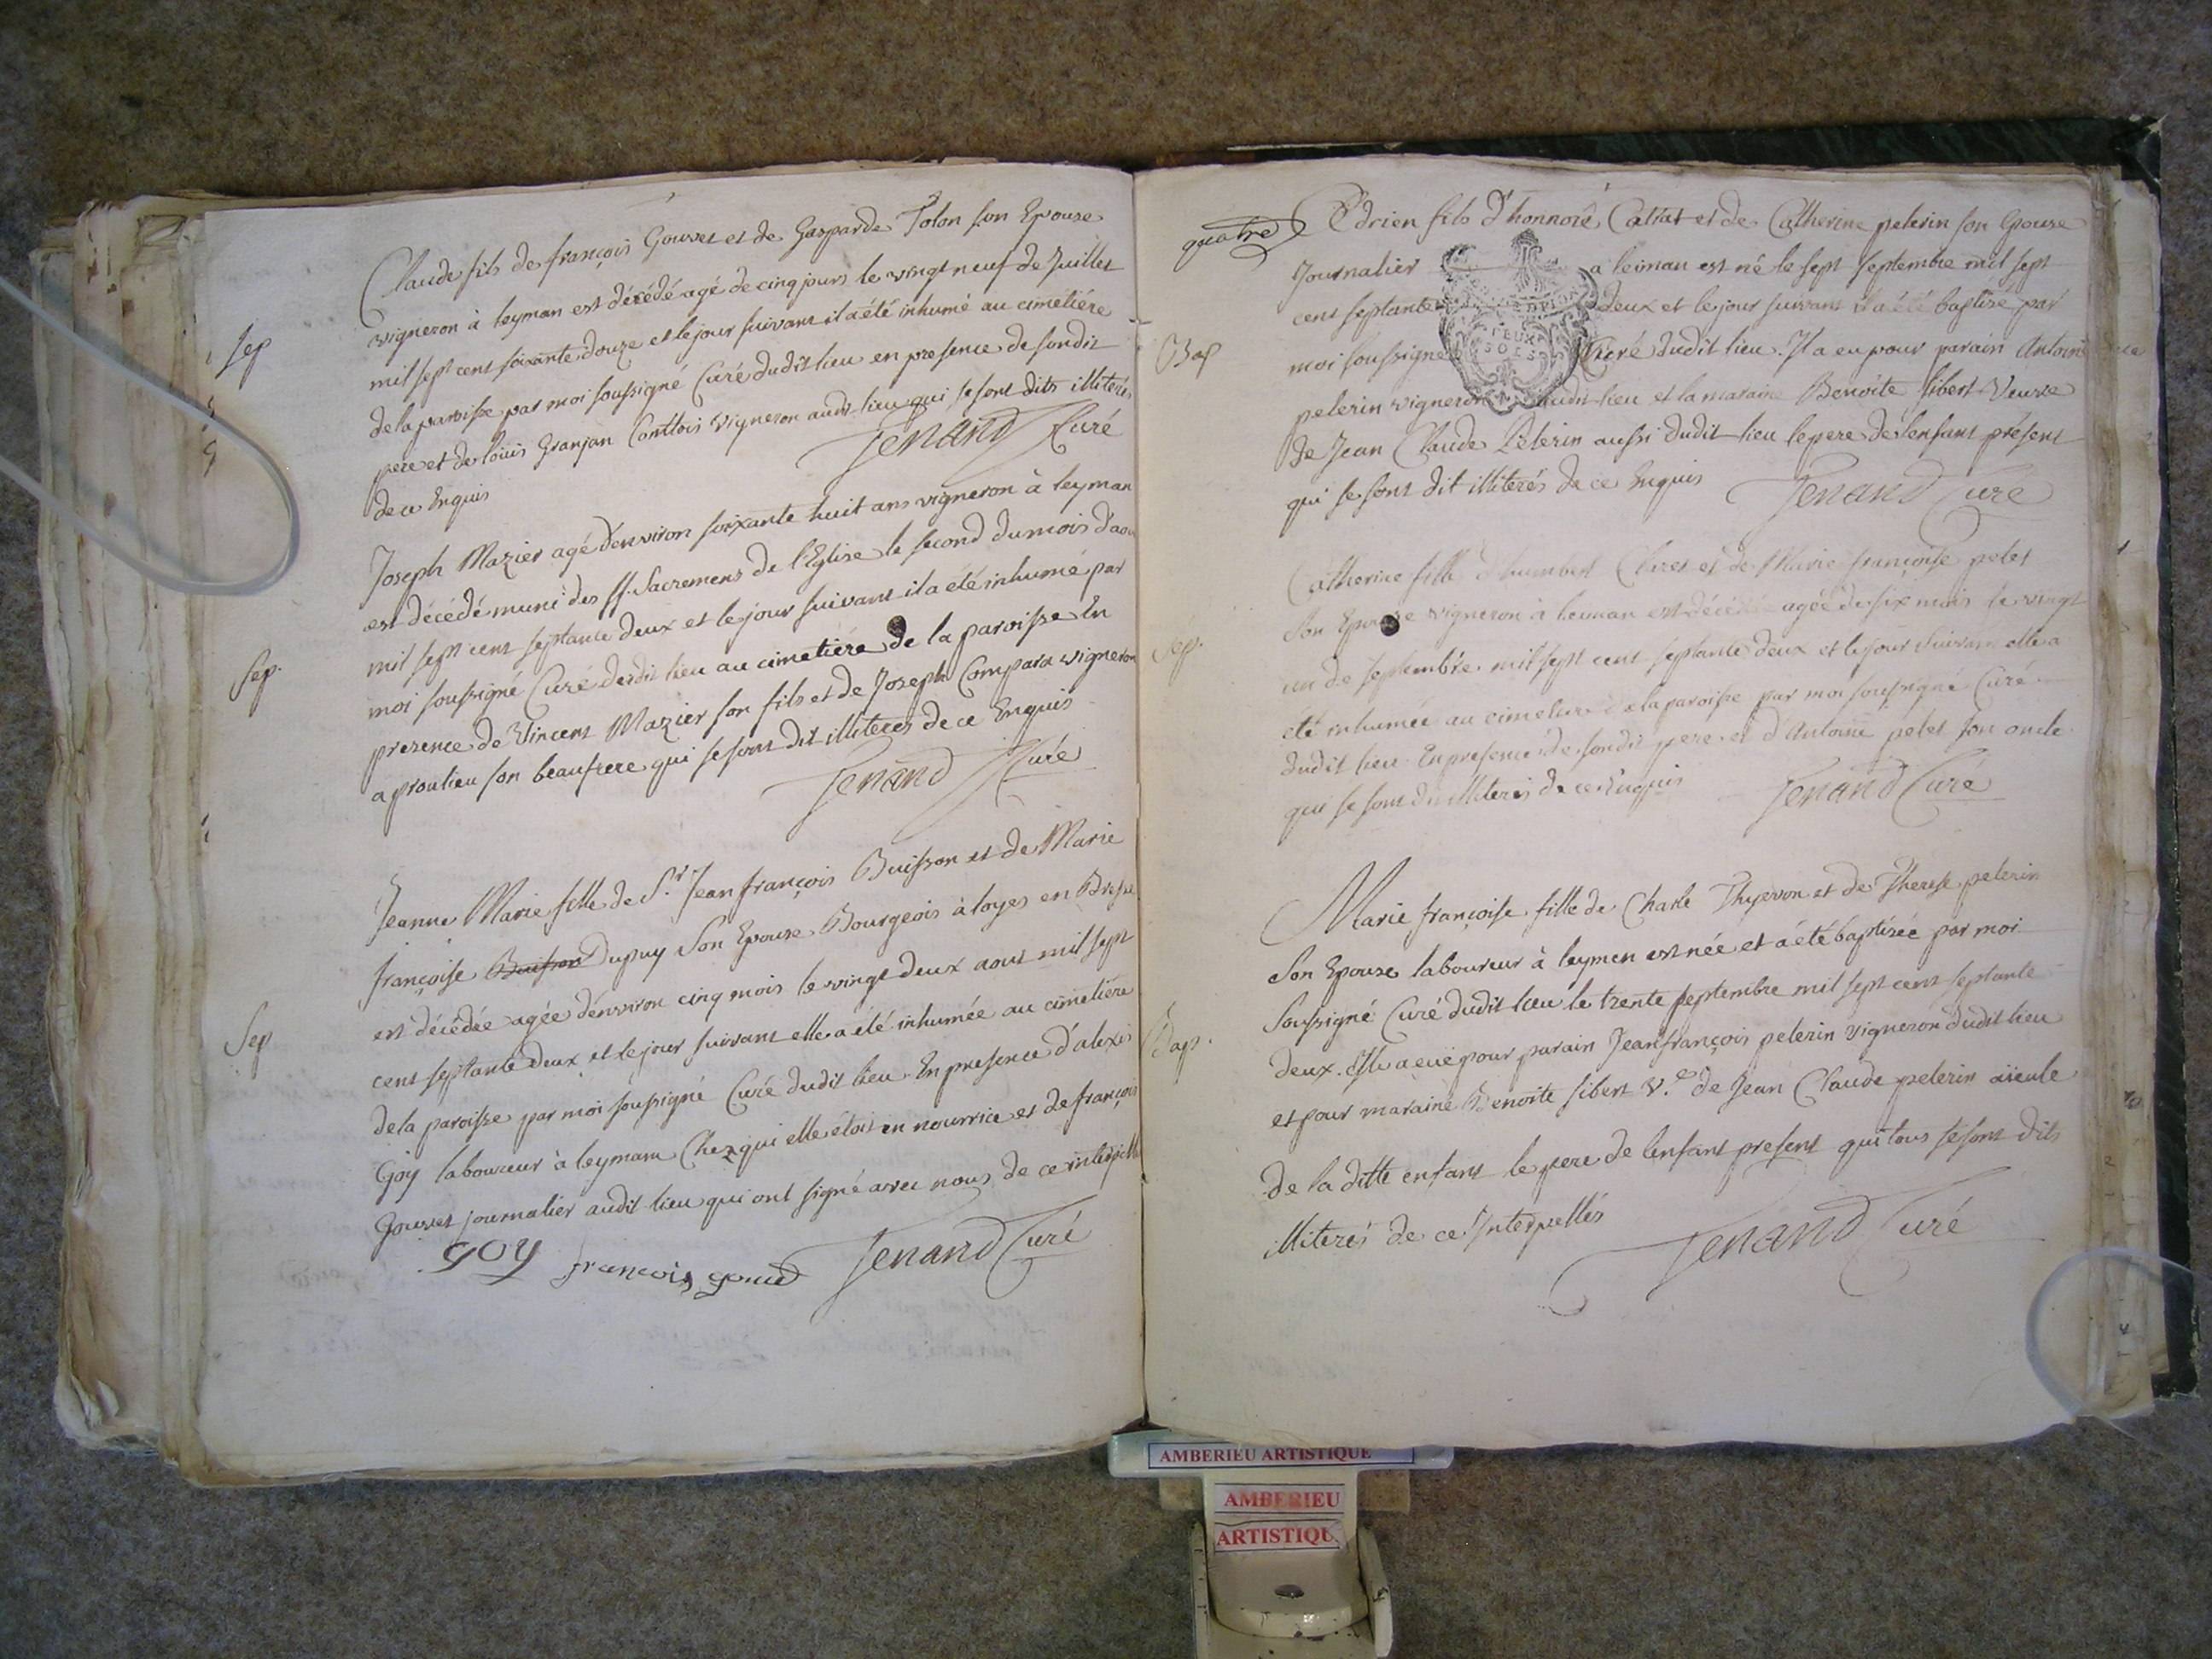 Claude fils de françois Gouvet et de Gasparde Tolon son Epouse
vigneron à leyman est décédé agé de cinq jours le vingt neuf de Juillet
Sep
mil sept cent soixante douze et le jour suivant il a été inhumé au cimetiére
de la paroisse par moi soussigné Curé dudit lieu en presence de sondit
pere et de loüis Granjan Comtlois vigneron audt lieu qui se sont dits illiterés
de ce Enquis
Jenand Curé
Joseph Mazier agé d'environ soixante huit ans vigneron à leyman
est décédé muni des ss. Sacremens de l'Eglise le second du mois d'aou
mil sept cent septante deux et le jour suivant il a été inhumé par
Sep.
moi soussigné Curé dudit lieu au cimetiére de la paroisse En
presence de Vincent Mazier son fils et de Joseph Compara vigneron
a proulieu son beaufrere qui se sont dit illiteres de ce Enquis
Jenand Curé
Jeanne Marie fille de Sr. Jean françois Buisson et de Marie
françoise Buisson Dupuy Son Epouse Bourgeois à loyes en Bresse
est décédée agée d'environ cinq mois le vingt deux aout mil sept
Sep
cent septante deux et le jour suivant elle a été inhumée au cimetiére
de la paroisse par moi soussigné Curé dudit lieu En presence d'alexis
Goy laboureur à leyman Chez qui elle étoit en nourrice et de françois
Gouvet journalier audit lieu qui ont signé avec nous de ce interpellé
goy françois gouvet Jenand Curé
quatre
Adrien fils d'honnoré Cattat et de Catherine pelerin son Epouse
Journalier a leiman est né le sept septembre mil sept
cent septante deux et le jour suivant il a été baptisé par
Bap
moi soussigné Curé dudit lieu. Il a eu pour parain Antoine
pelerin vigneron dudit lieu et la maraine Benoite sibert Veuve
de Jean Claude Pelerin aussi dudit lieu le pere de l'enfant présent
qui se sont dit illiterés de ce Enquis Jenand Curé
Catherine fille d'humbert Claret et de Marie françoise pelet
Son Epouse vigneron à leiman est décédée agée de six mois le vingt
Sep.
un de septembre mil sept cent septante deux et le jour suivant elle a
été inhumée au cimetiere de la paroisse par moi soussigné Curé
dudit lieu En presence de sondit pere et d'Antoine pelet son oncle
qui se sont dit illiterés de ce Enquis Jenand Curé
Marie françoise fille de Charle Thyevon et de Therese pelerin
Son Epouse laboureur à leymen est née et a été baptisée par moi
Soussigné Curé dudit lieu le trente septembre mil sept cent septante
Bap.
deux. Elle a eue pour parain Jean françois pelerin vigneron dudit lieu
et pour maraine Benoite sibert Ve. de Jean Claude pelerin aïeule
de la ditte enfant le pere de l'enfant present qui tous se sont dits
illiterés de ce Interpellés
Jenand Curé
AMBERIEU ARTISTIQUE
AMBERIEU
ARTISTIQU